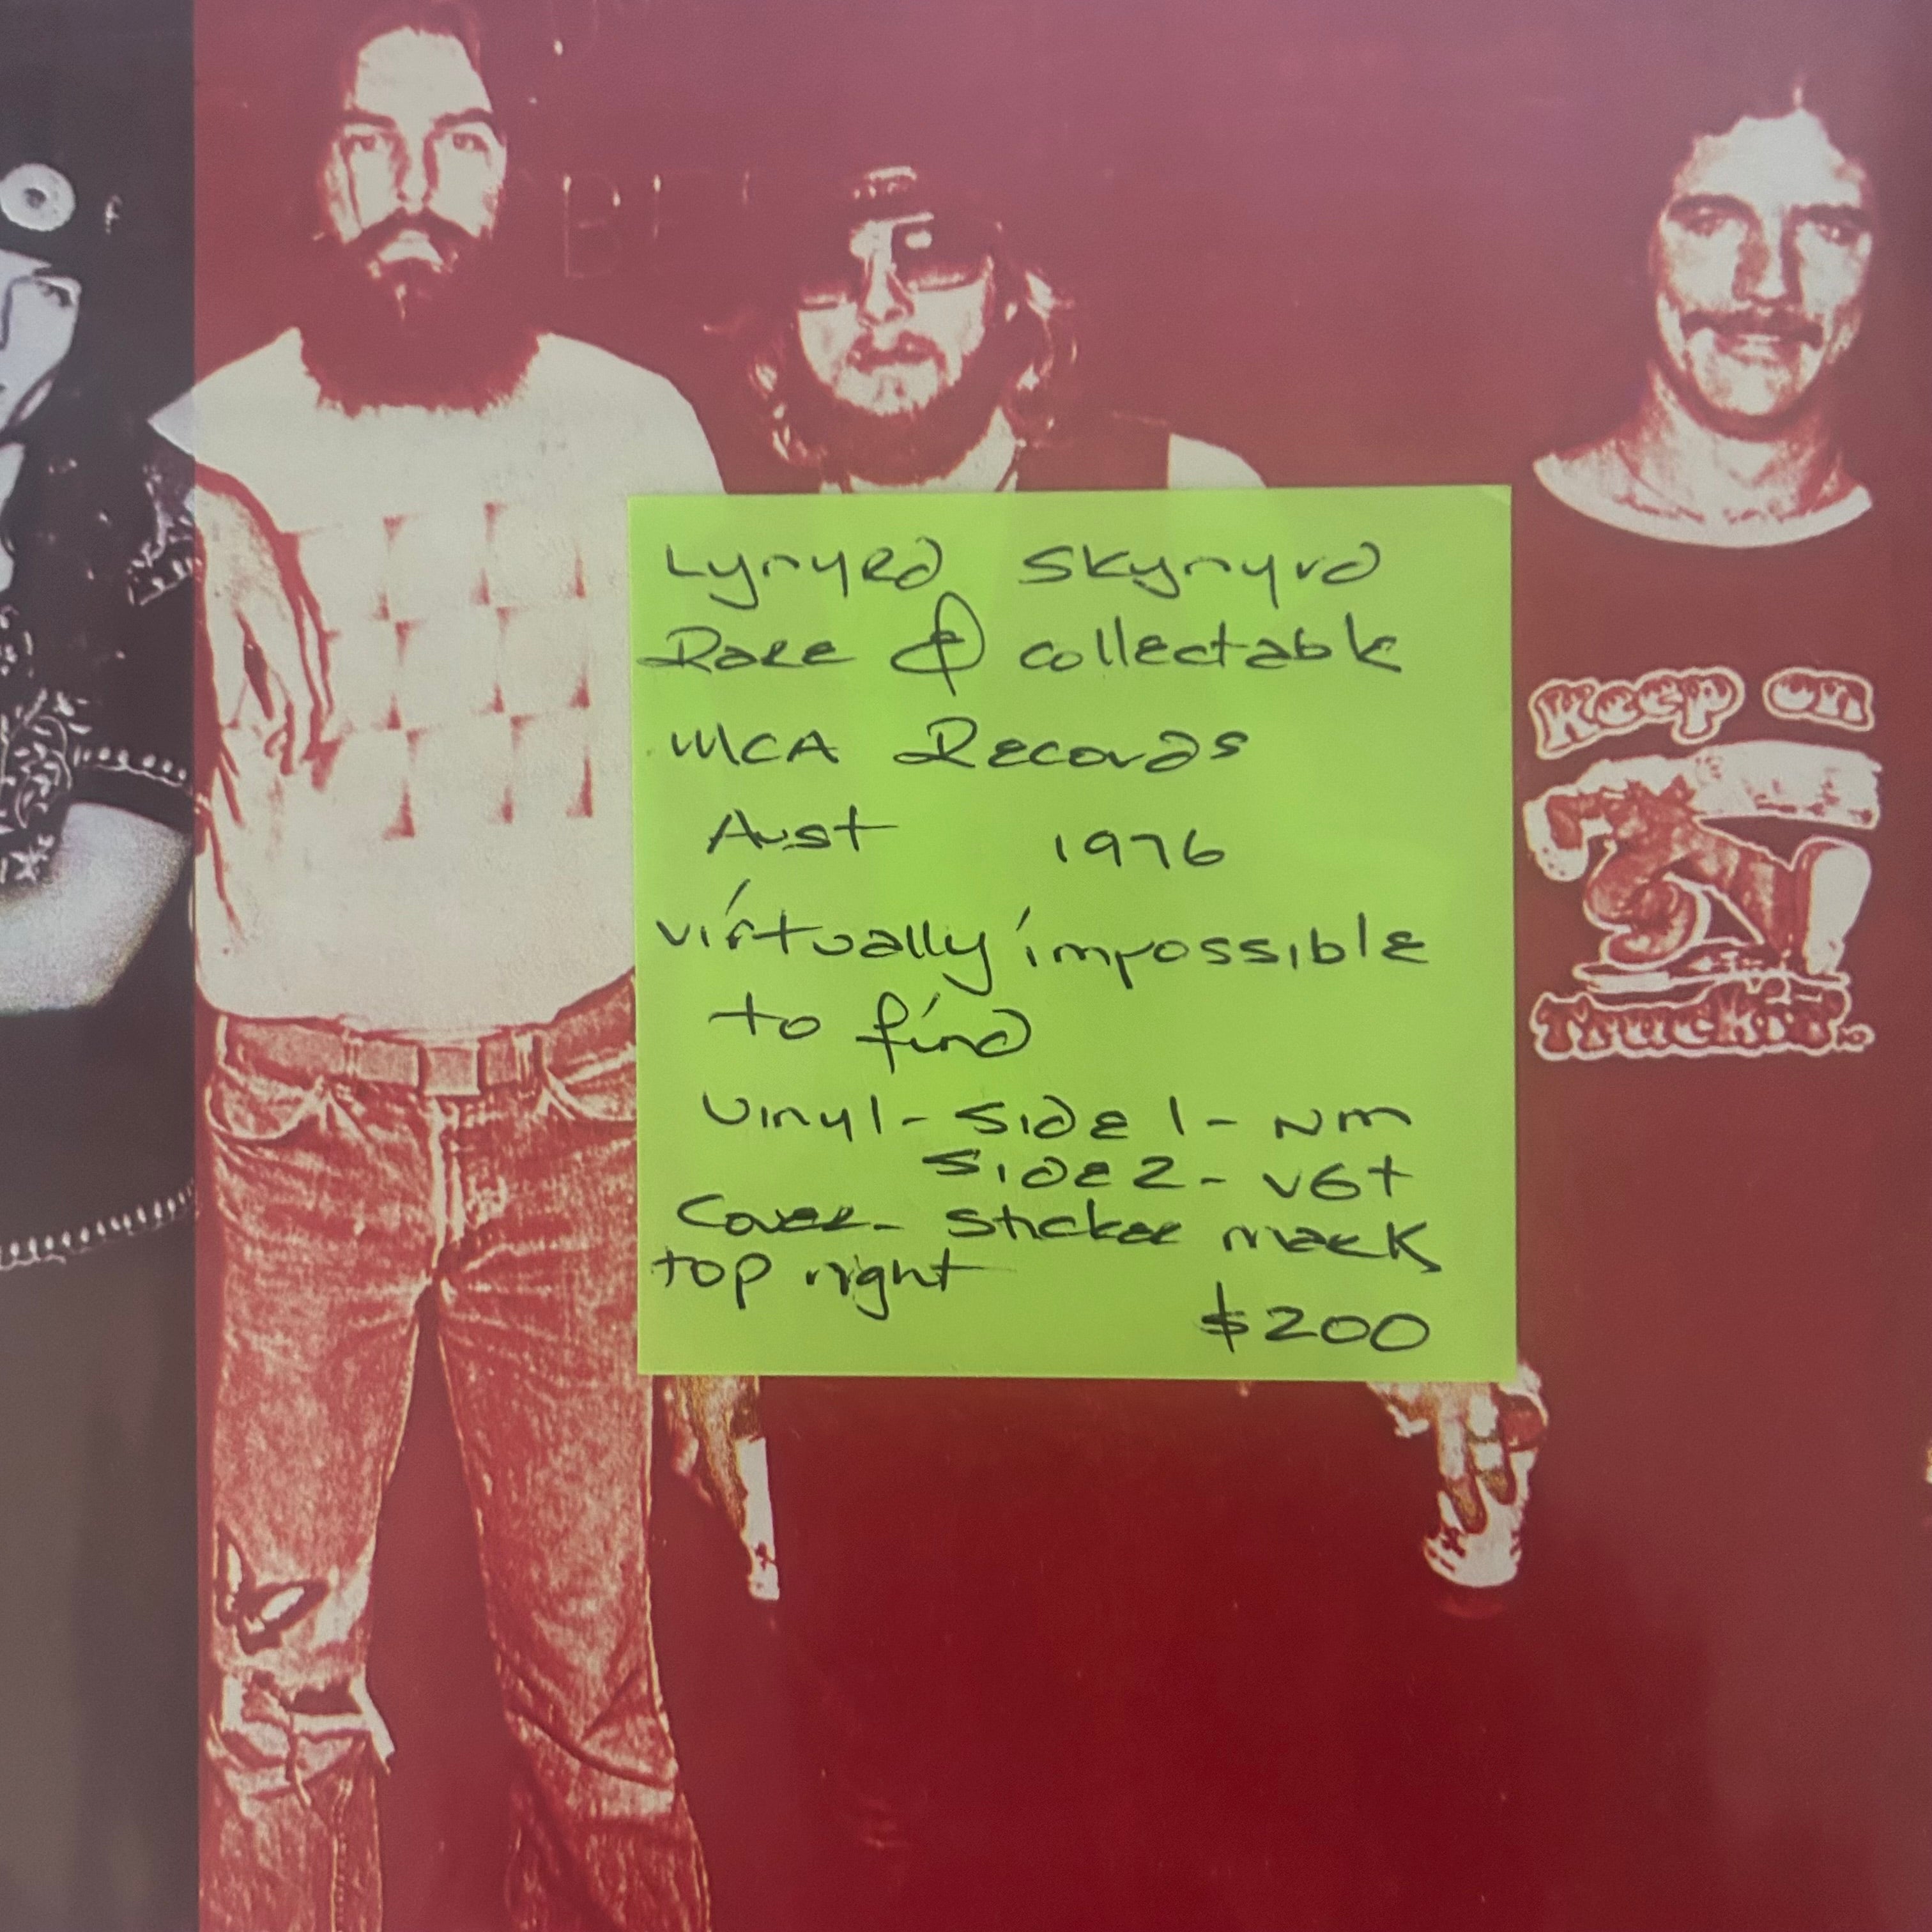 Lynyrd Skynyrd
Rare & collectable
MCA Records
Aust 1976
virtually impossible
to find
Vinyl - Side 1 - NM
Side 2 - VG+
Cover - sticker mark
top right
$200
Keep on
Truckin'